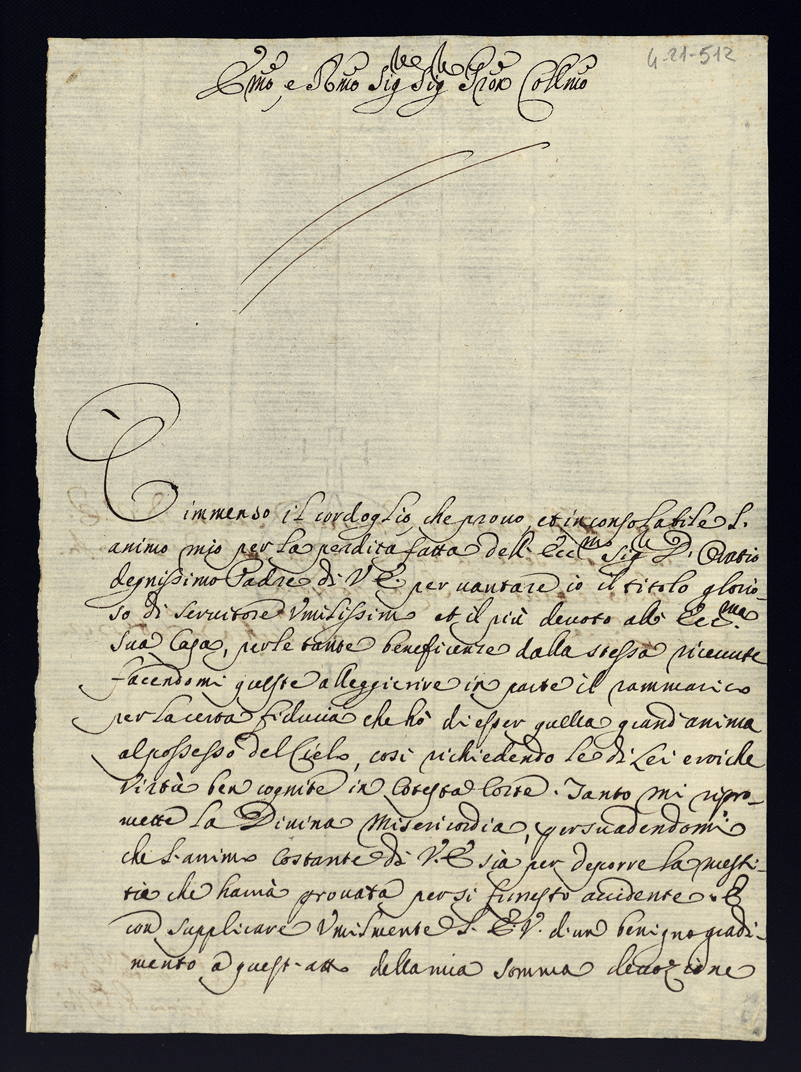 4-21-512
Emo, e Rmo Sig.re Sig.re Pron Collmo
È immenso il cordoglio, che prouo, et inconsolabile l'
animo mio per la perdita fatta dell'Ecc.mo Sig.r D. Oratio
degnissimo Padre di V.E. per uantare io il titolo glorio-
so di seruitore Vmilissimo et il più deuoto all' Ecc.ma
sua Casa, per le tante beneficenze dalla stessa riceuute
facendomi queste alleggierire in parte il rammarico
per la certa fiducia che hò di esser quella grand'anima
al possesso del Cielo, cosi richiedendo le di Lei eroiche
Virtù ben cognite in Cotesta Corte. Tanto mi ripro-
mette la Diuina Misericordia, persuadendomi
che l'animo Costante di V.E. sia per deporre la mesti-
tia che haurà prouata per si funesto accidente. E
con supplicare Vmilmente l'E.V. d'un benigno gradi-
mento a quest'atto della mia somma deuozione